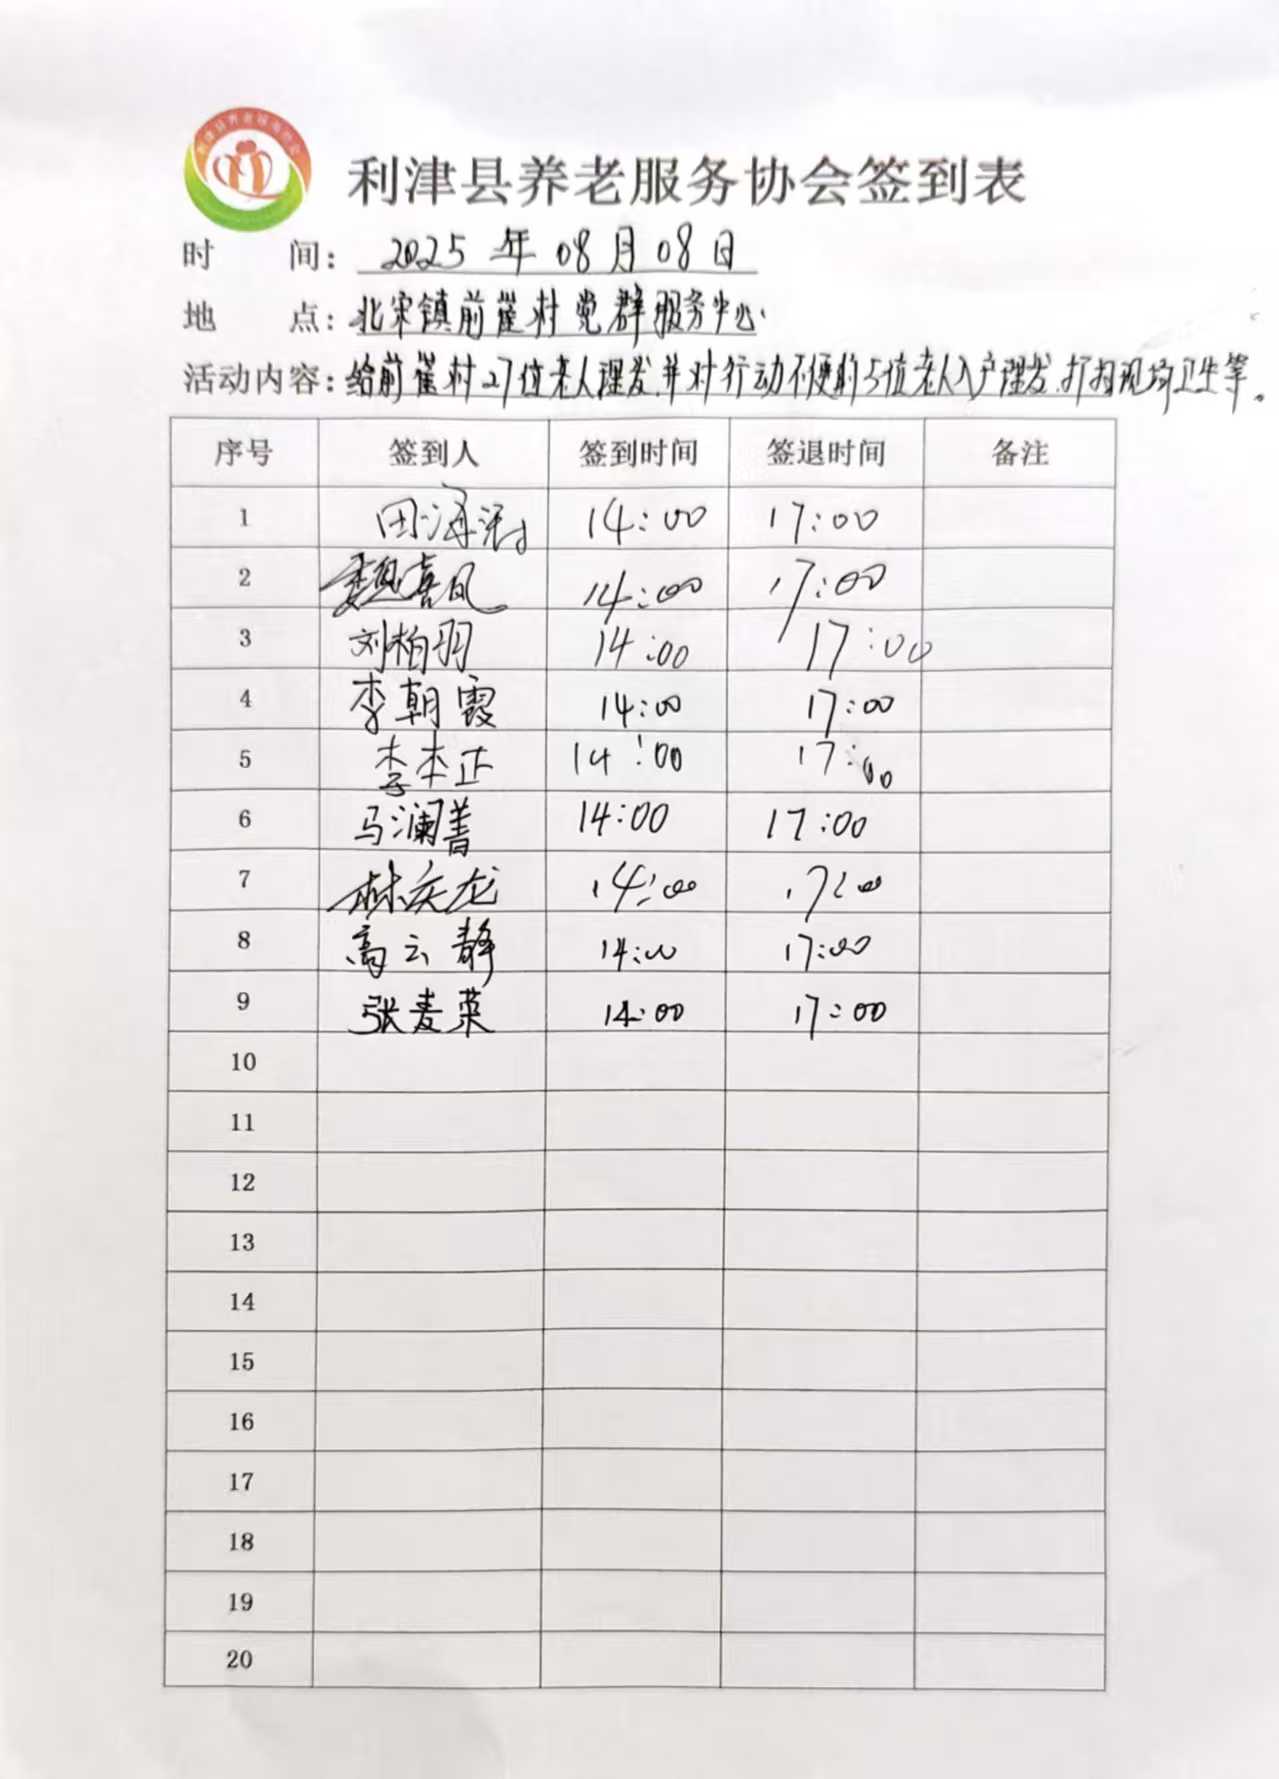 利津县养老服务协会签到表
时 间: 2025年08月08日
地 点: 北宋镇前崔村党群服务中心
活动内容: 给前崔村27位老人理发.并对行动不便的5位老人入户理发.打扫现场卫生等。
序号 签到人 签到时间 签退时间 备注
1 田 14:00 17:00
2 魏喜凤 14:00 17:00
3 刘柏羽 14:00 17:00
4 李朝霞 14:00 17:00
5 李本正 14:00 17:00
6 马澜菁 14:00 17:00
7 林庆龙 14:00 17:00
8 高云静 14:00 17:00
9 张麦荣 14:00 17:00
10
11
12
13
14
15
16
17
18
19
20